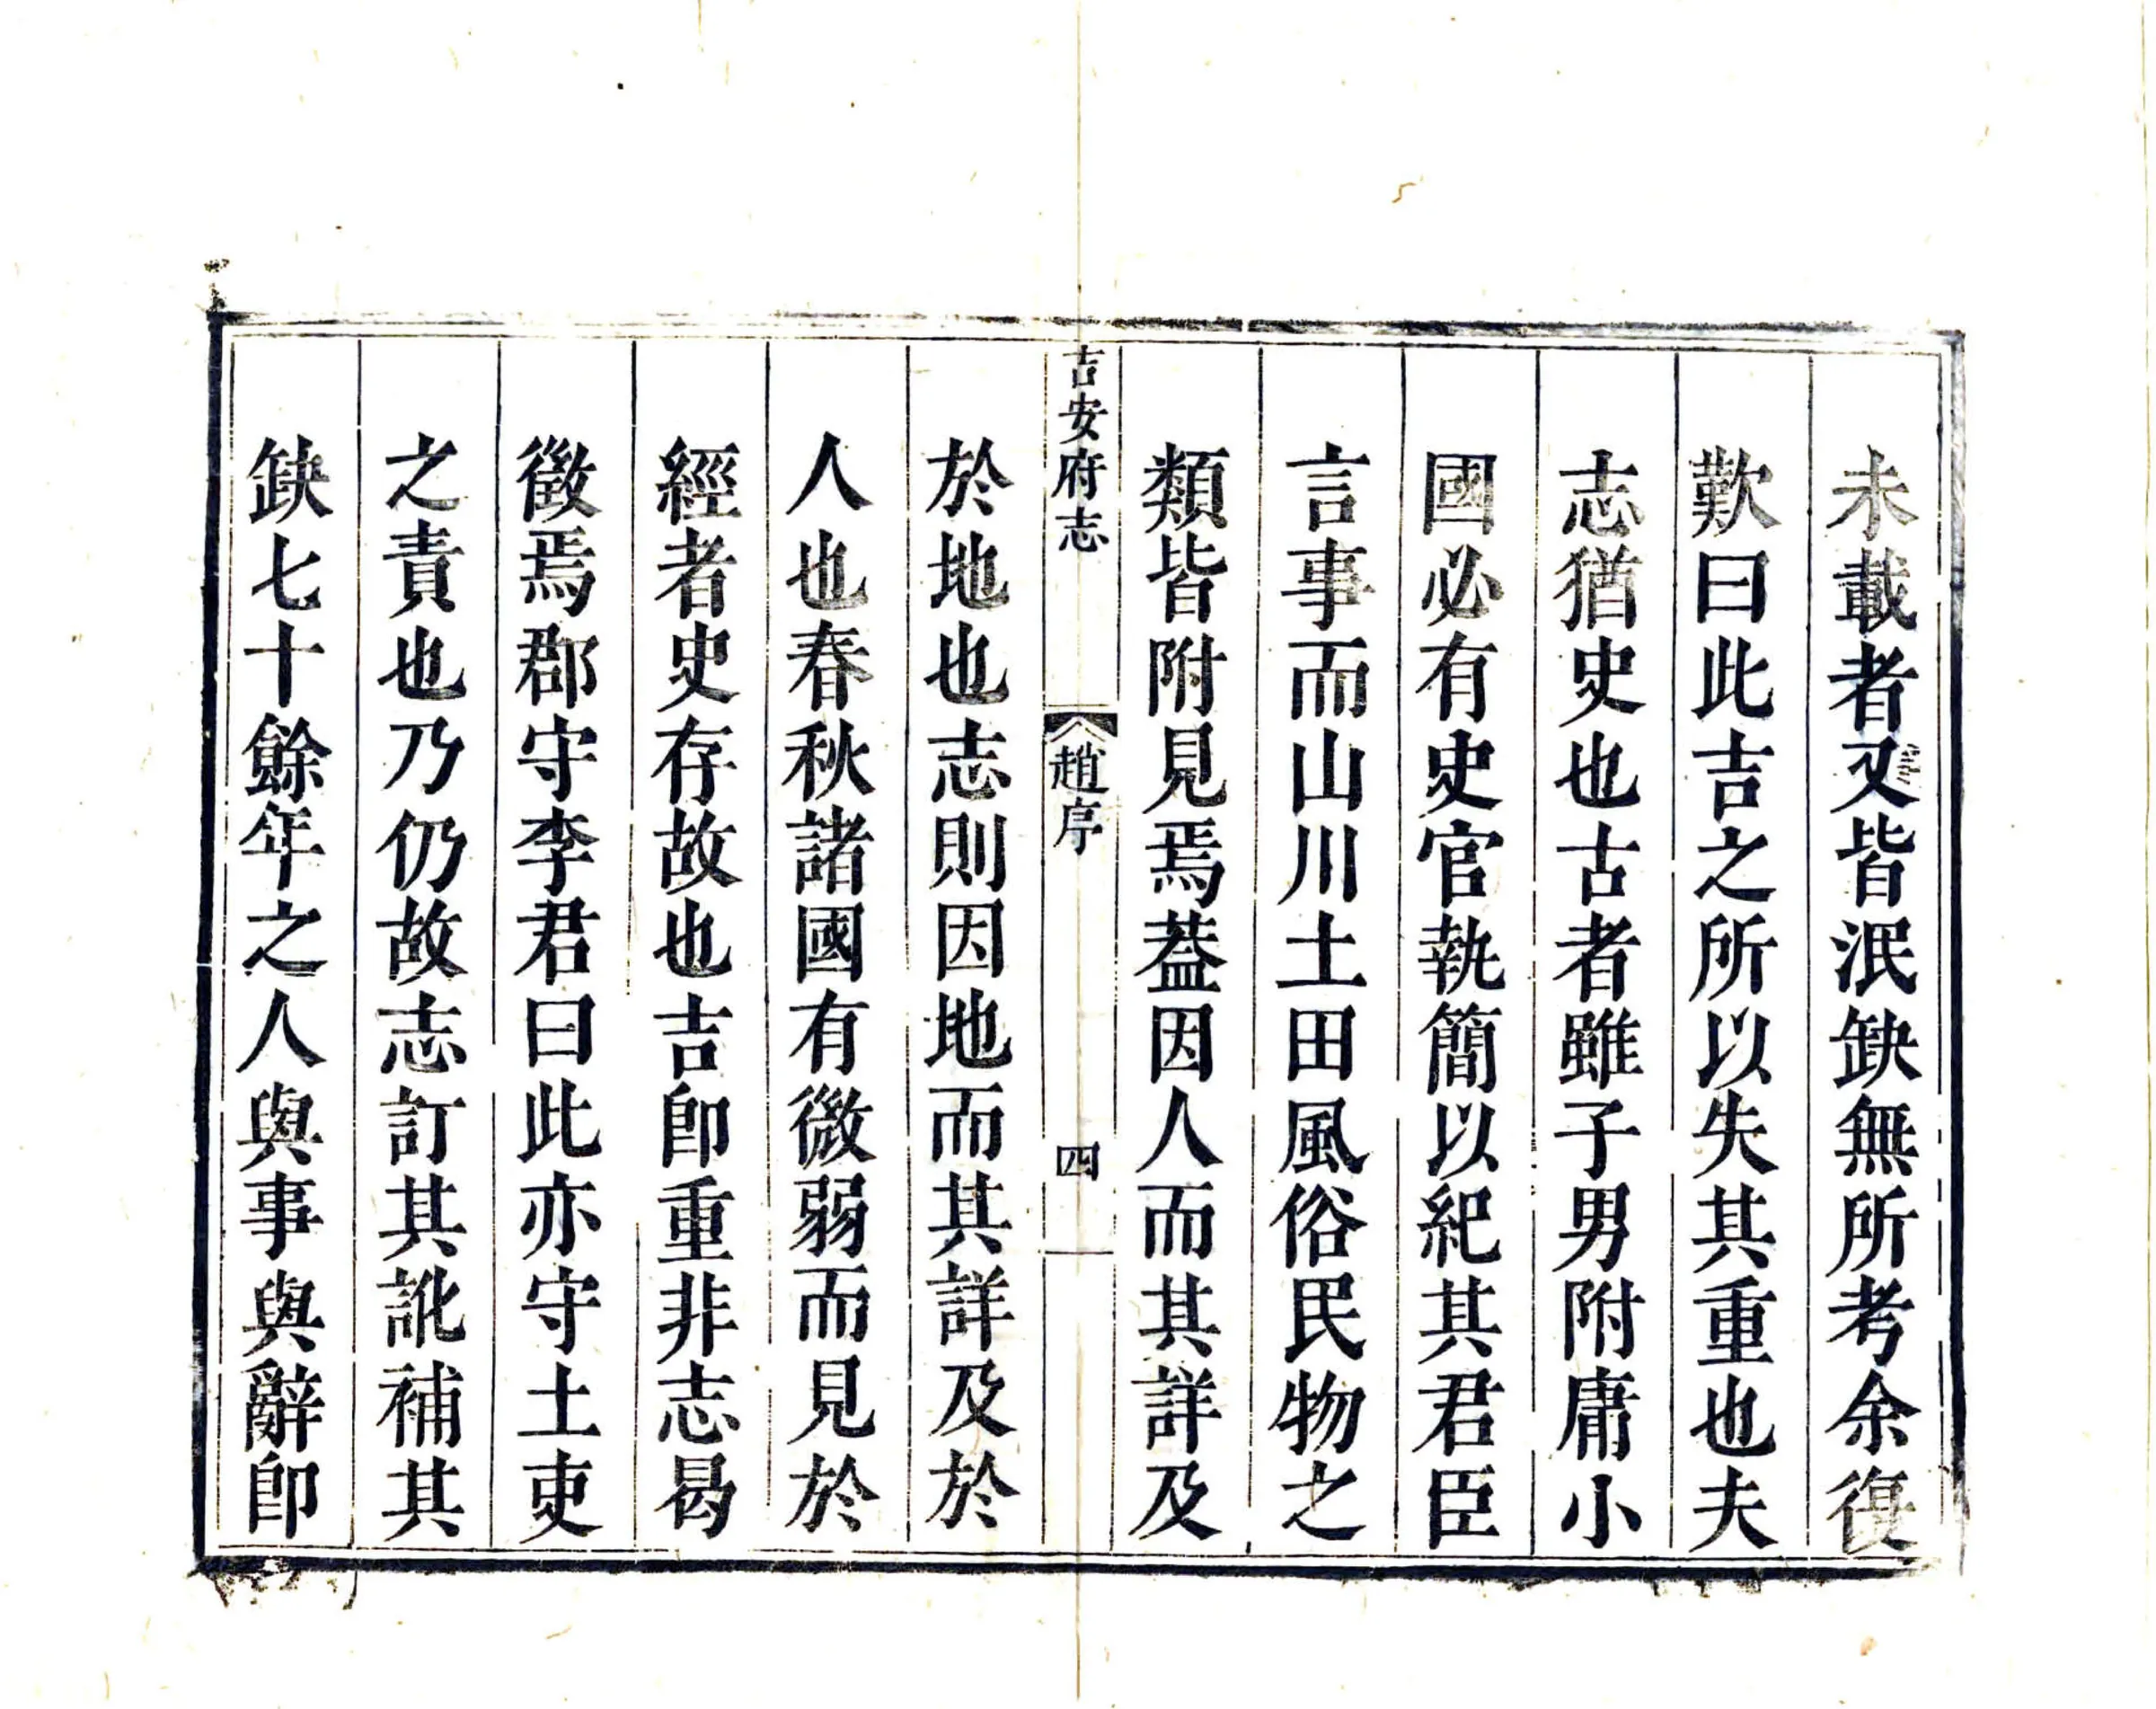 未載者又皆泯缺無所考余復
歎曰此吉之所以失其重也夫
志猶史也古者雖子男附庸小
國必有史官執簡以紀其君臣
言事而山川土田風俗民物之
類皆附見焉葢因人而其詳及
吉安府志
趙序
四
於地也志則因地而其詳及於
人也春秋諸國有微弱而見於
經者史存故也吉卽重非志曷
徵焉郡守李君曰此亦守土吏
之責也乃仍故志訂其訛補其
缺七十餘年之人與事與辭卽